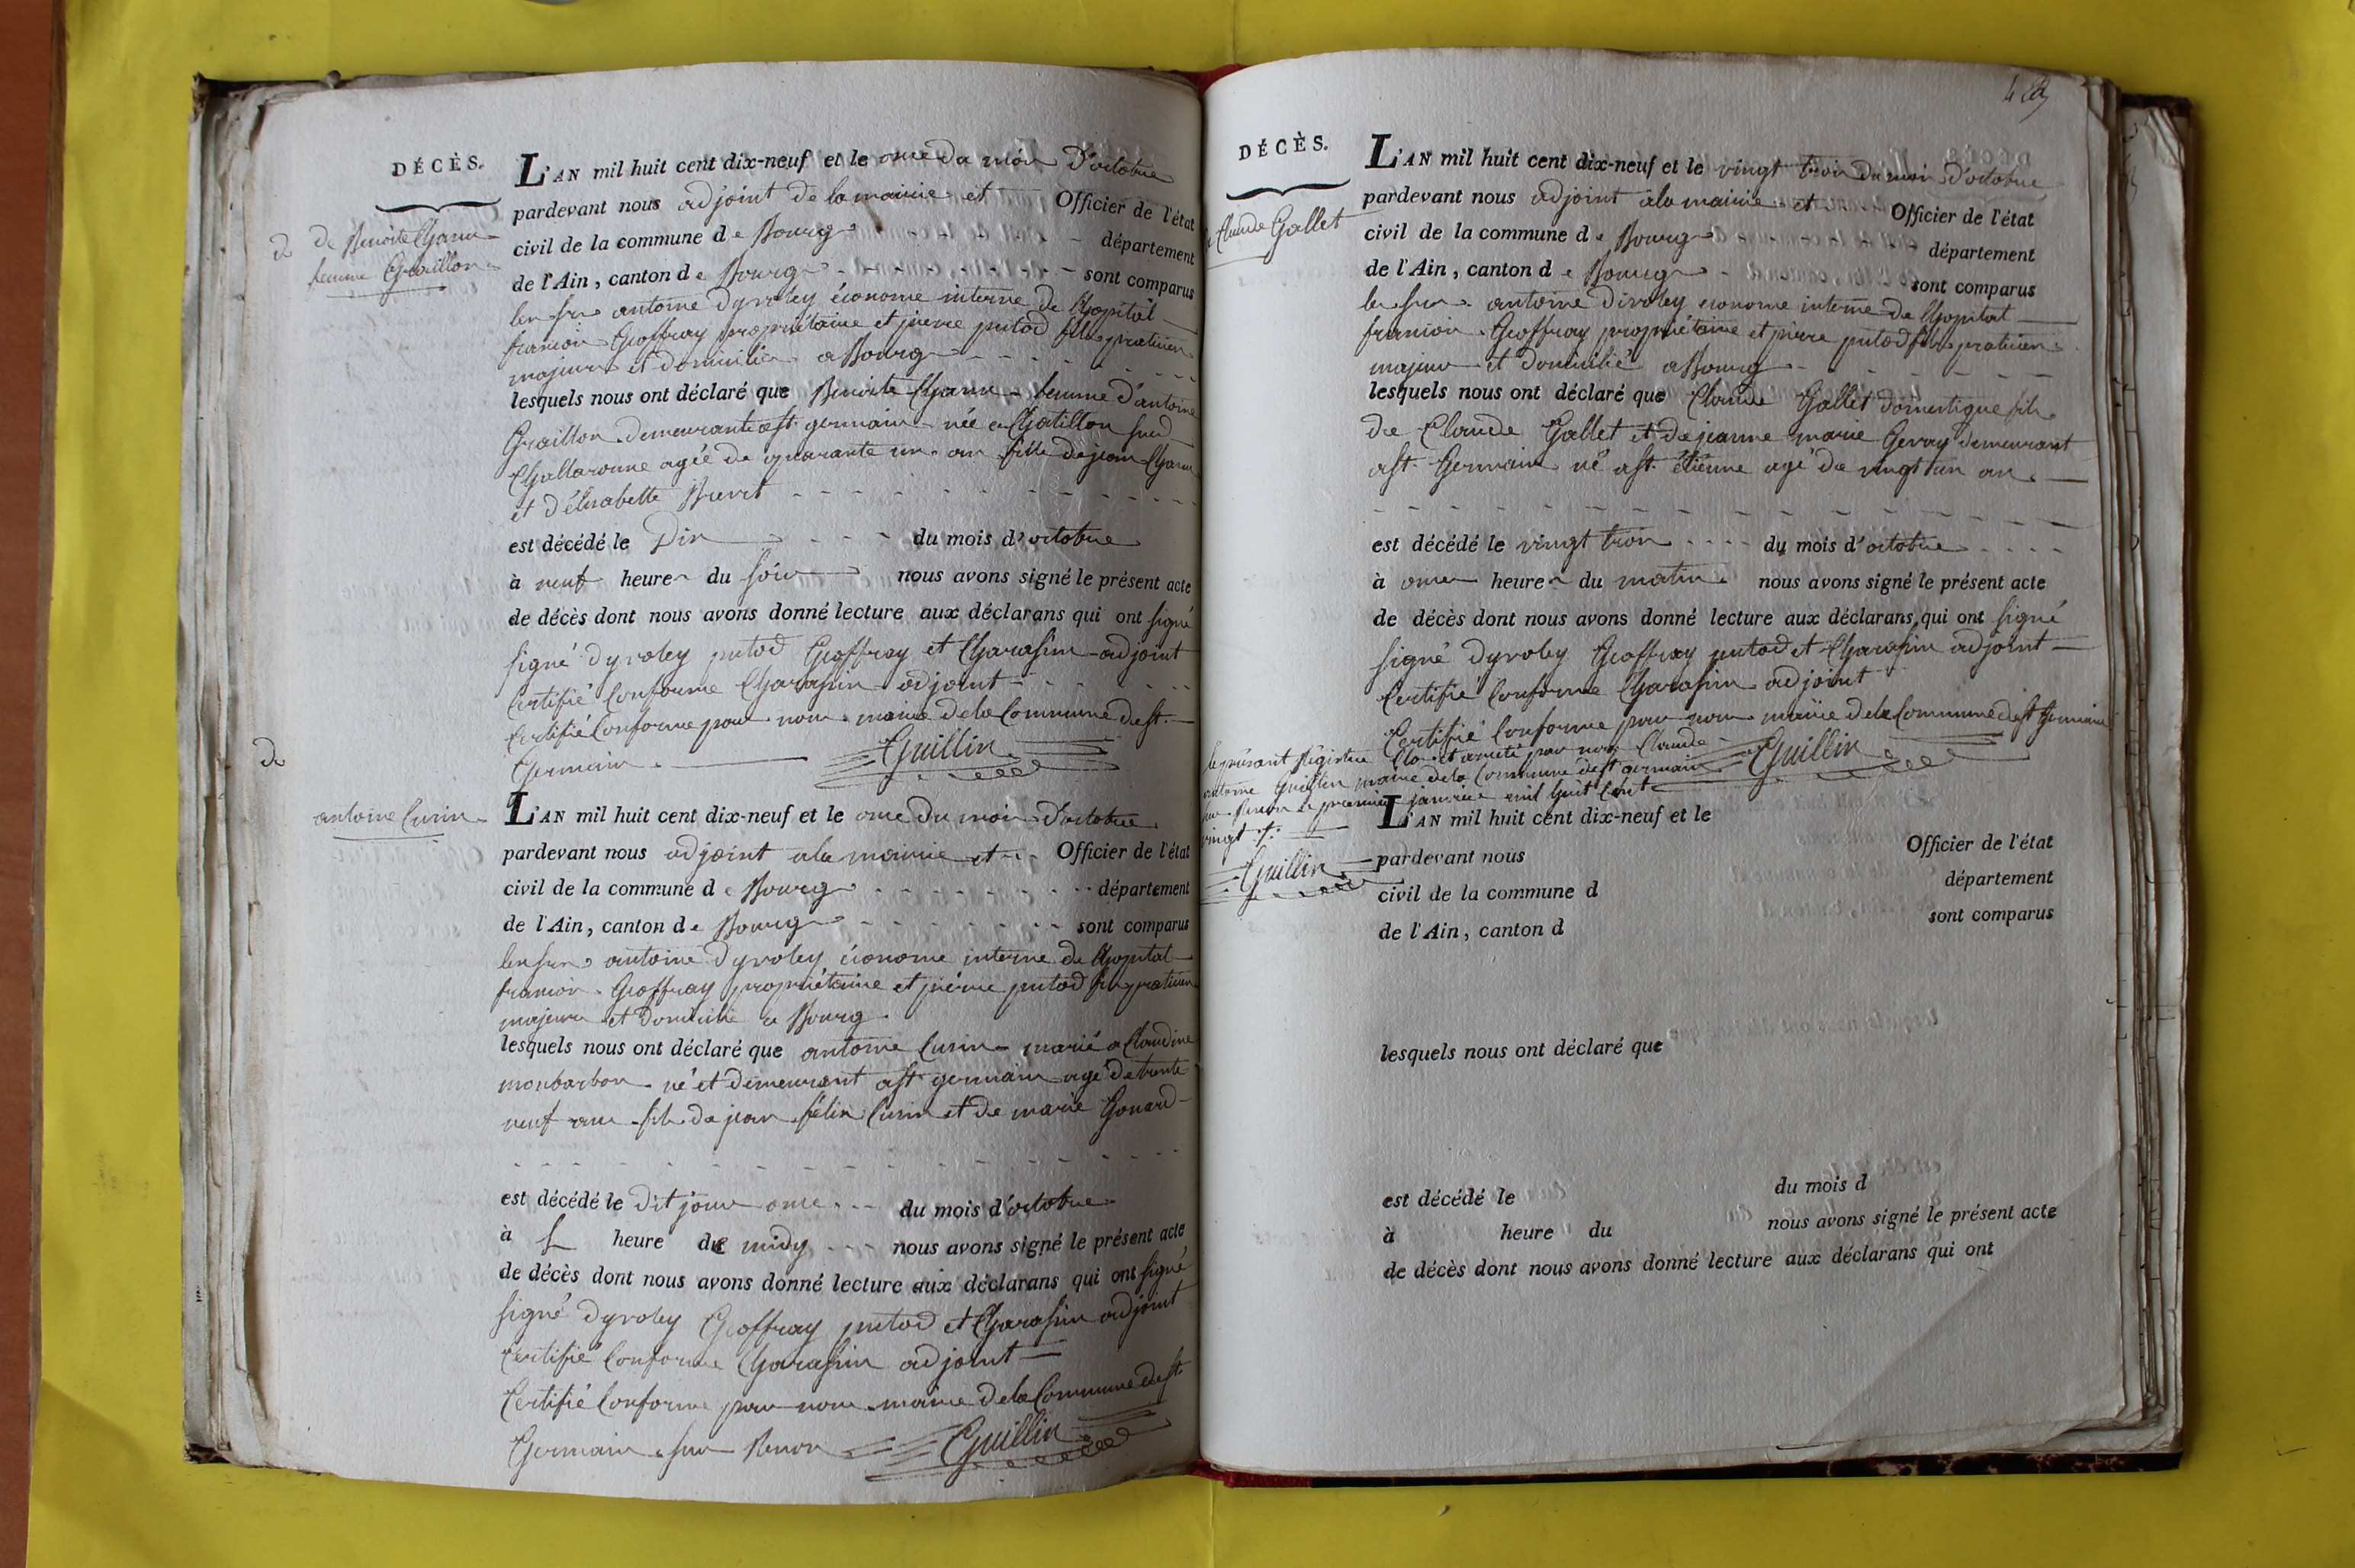 DÉCÈS.
de Benoite Charm
femme Graillon
L'AN mil huit cent dix-neuf et le onze du mois d'octobre
pardevant nous adjoint de la mairie et Officier de l'état
civil de la commune de Bourg département
de l'Ain, canton de Bourg sont comparus
les srs antoine dyroley économe interne de l'hopital
francois Geoffray propriétaire et pierre putod fils praticien
majeurs et domiciliés a Bourg
lesquels nous ont déclaré que Benoite femme d'antoine
Graillon demeurante a st. germain née a Chatillon sur
Challaronne agée de quarante un an fille de jean
et d'élisabette
est décédé le Dix du mois d'octobre
à neuf heures du soir nous avons signé le présent acte
de décès dont nous avons donné lecture aux déclarans qui ont signé
signé dyroley putod Geoffray et Charassin adjoint
Certifié Conforme Charassin adjoint
Certifié Conforme par nous maire de la Commune de st.
Germain. Guillin
de
antoine Curin
L'AN mil huit cent dix-neuf et le onze du mois d'octobre
pardevant nous adjoint a la mairie et Officier de l'état
civil de la commune de Bourg département
de l'Ain, canton de Bourg sont comparus
les srs antoine dyroley économe interne de l'hopital
francois Geoffray propriétaire et pierre putod fils praticien
majeurs et domiciliés a Bourg
lesquels nous ont déclaré que antoine Curin marié a Claudine
monbarbon né et demeurant a st. germain agé de trente
neuf ans fils de jean félix Curin et de marie Gonard
est décédé le dit jour onze du mois d'octobre
à L heure de midy nous avons signé le présent acte
de décès dont nous avons donné lecture aux déclarans qui ont signé
signé dyroley Geoffray putod et Charassin adjoint
Certifié Conforme Charassin adjoint
Certifié Conforme par nous maire de la Commune de st.
Germain sur Renon Guillin
DÉCÈS.
Claude Gallet
L'AN mil huit cent dix-neuf et le vingt trois du mois d'octobre
pardevant nous adjoint a la mairie et Officier de l'état
civil de la commune de Bourg département
de l'Ain, canton de Bourg sont comparus
les srs antoine diroley économe interne de l'hopital
francois Geoffray propriétaire et pierre putod fils praticien
majeurs et domicilié a Bourg
lesquels nous ont déclaré que Claude Gallet domestique fils
de Claude Gallet et de jeanne marie Gervay demeurant
a st. Germain né a st. étienne agé de vingt un an
est décédé le vingt trois du mois d'octobre
à onze heures du matin nous avons signé le présent acte
de décès dont nous avons donné lecture aux déclarans, qui ont signé
signé dyroley Geoffray putod et Charassin adjoint
Certifié Conforme Charassin adjoint
Certifié Conforme par nous maire de la Commune de st Germain
Guillin
le présent Régistre Clos et arreté par nous Claude
antoine Guillin maire de la Commune de st germain
sur Renon le premier janvier mil huit Cent
vingt
Guillin
L'AN mil huit cent dix-neuf et le
pardevant nous Officier de l'état
civil de la commune d département
de l'Ain, canton d sont comparus
lesquels nous ont déclaré que
est décédé le du mois d
à heure du nous avons signé le présent acte
de décès dont nous avons donné lecture aux déclarans qui ont